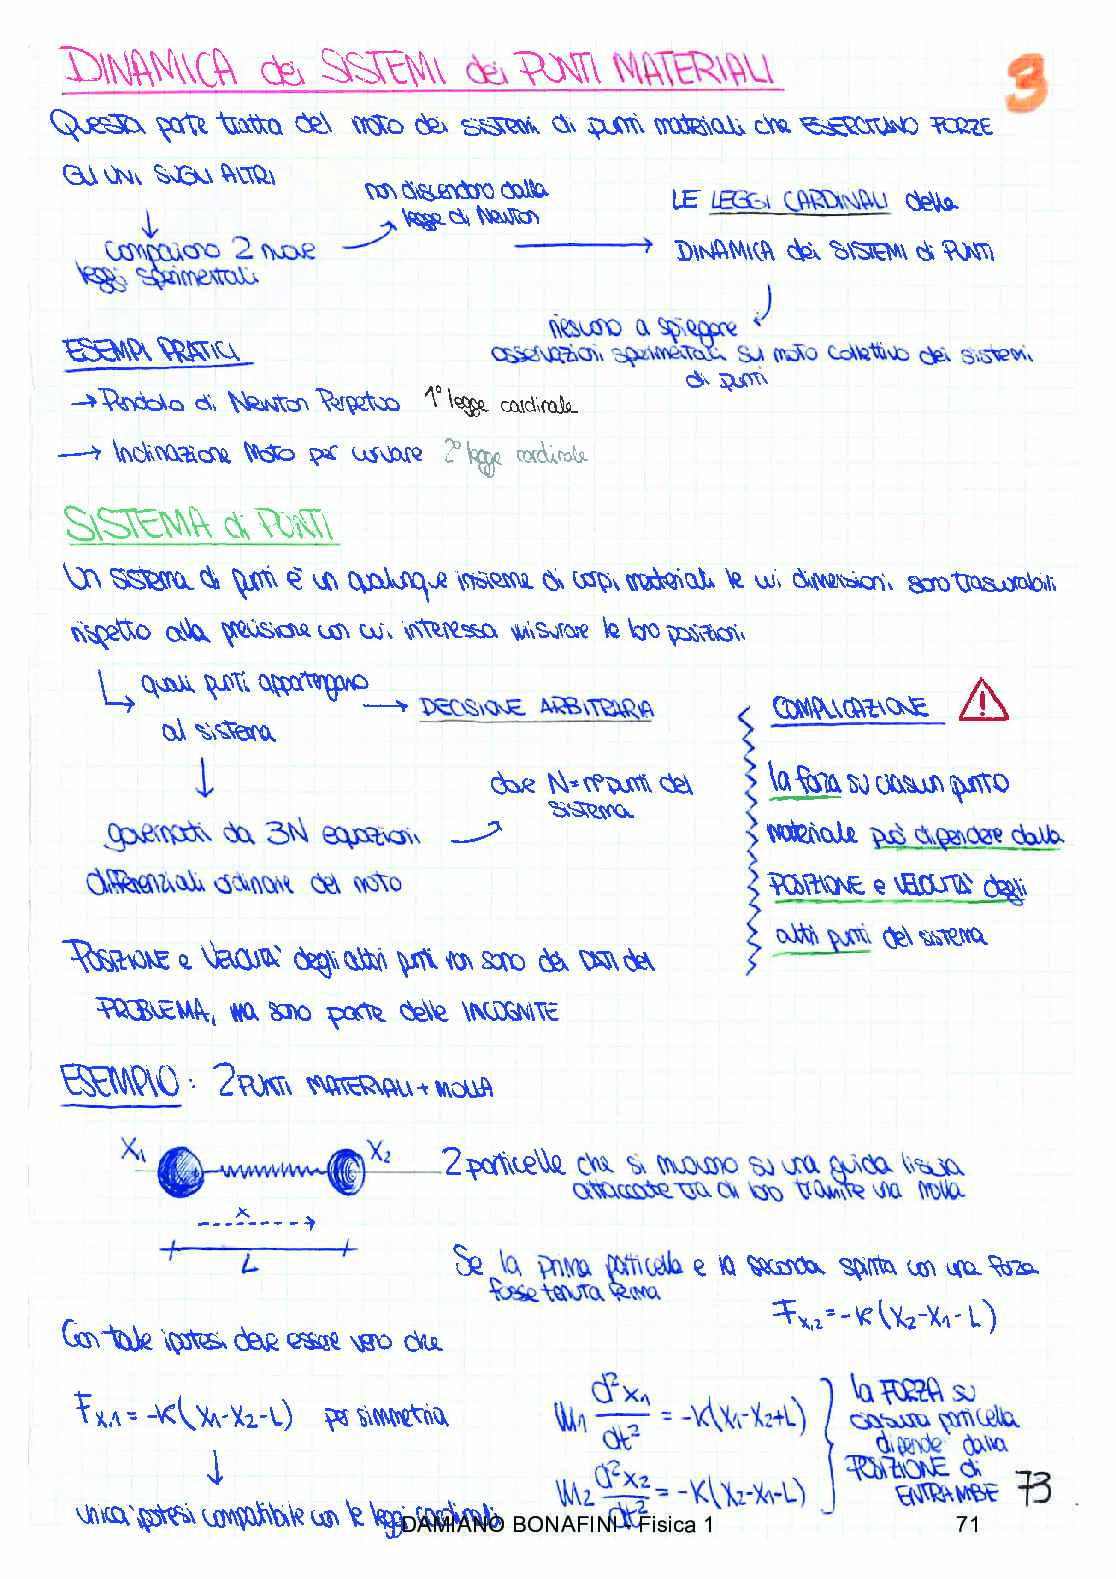 DINAMICA dei SISTEMI dei PUNTI MATERIALI
3
Questa parte tratta del moto dei sistemi di punti materiali che ESERCITANO FORZE
GLI UNI SUGLI ALTRI
non discendono dalla
legge di Newton
LE LEGGI CARDINALI della
compaiono 2 nuove
leggi sperimentali
DINAMICA dei SISTEMI di PUNTI
riescono a spiegare
osservazioni sperimentali sul moto collettivo dei sistemi
di punti
ESEMPI PRATICI
→ Pendolo di Newton Perpetuo 1° legge cardinale
→ Inclinazione Moto per curvare 2° legge cardinale
SISTEMA di PUNTI
Un sistema di punti è un qualunque insieme di corpi materiali le cui dimensioni sono trascurabili
rispetto alla precisione con cui interessa misurare le loro posizioni
quali punti appartengono
al sistema
→ DECISIONE ARBITRARIA
COMPLICAZIONE
!
la forza su ciascun punto
materiale può dipendere dalla
POSIZIONE e VELOCITA' degli
altri punti del sistema
dove N=n°punti del
sistema
governati da 3N equazioni
differenziali ordinarie del moto
POSIZIONE e VELOCITA' degli altri punti non sono dei DATI del
PROBLEMA, ma sono parte delle INCOGNITE
ESEMPIO: 2 PUNTI MATERIALI + MOLLA
X1
X2
x
L
2 particelle che si muovono su una guida liscia
attaccate tra di loro tramite una molla
Se la prima particella e la seconda spinta con una forza
fosse tenuta ferma
Fx,2 = -K(X2-X1-L)
Con tale ipotesi deve essere vero che
Fx,1 = -K(X1-X2-L) per simmetria
unica ipotesi compatibile con le leggi cardinali
m1 d²x1/dt² = -K(X1-X2+L)
m2 d²x2/dt² = -K(X2-X1-L)
la FORZA su
ciascuna particella
dipende dalla
POSIZIONE di
ENTRAMBE
73
DAMIANO BONAFINI - Fisica 1
71